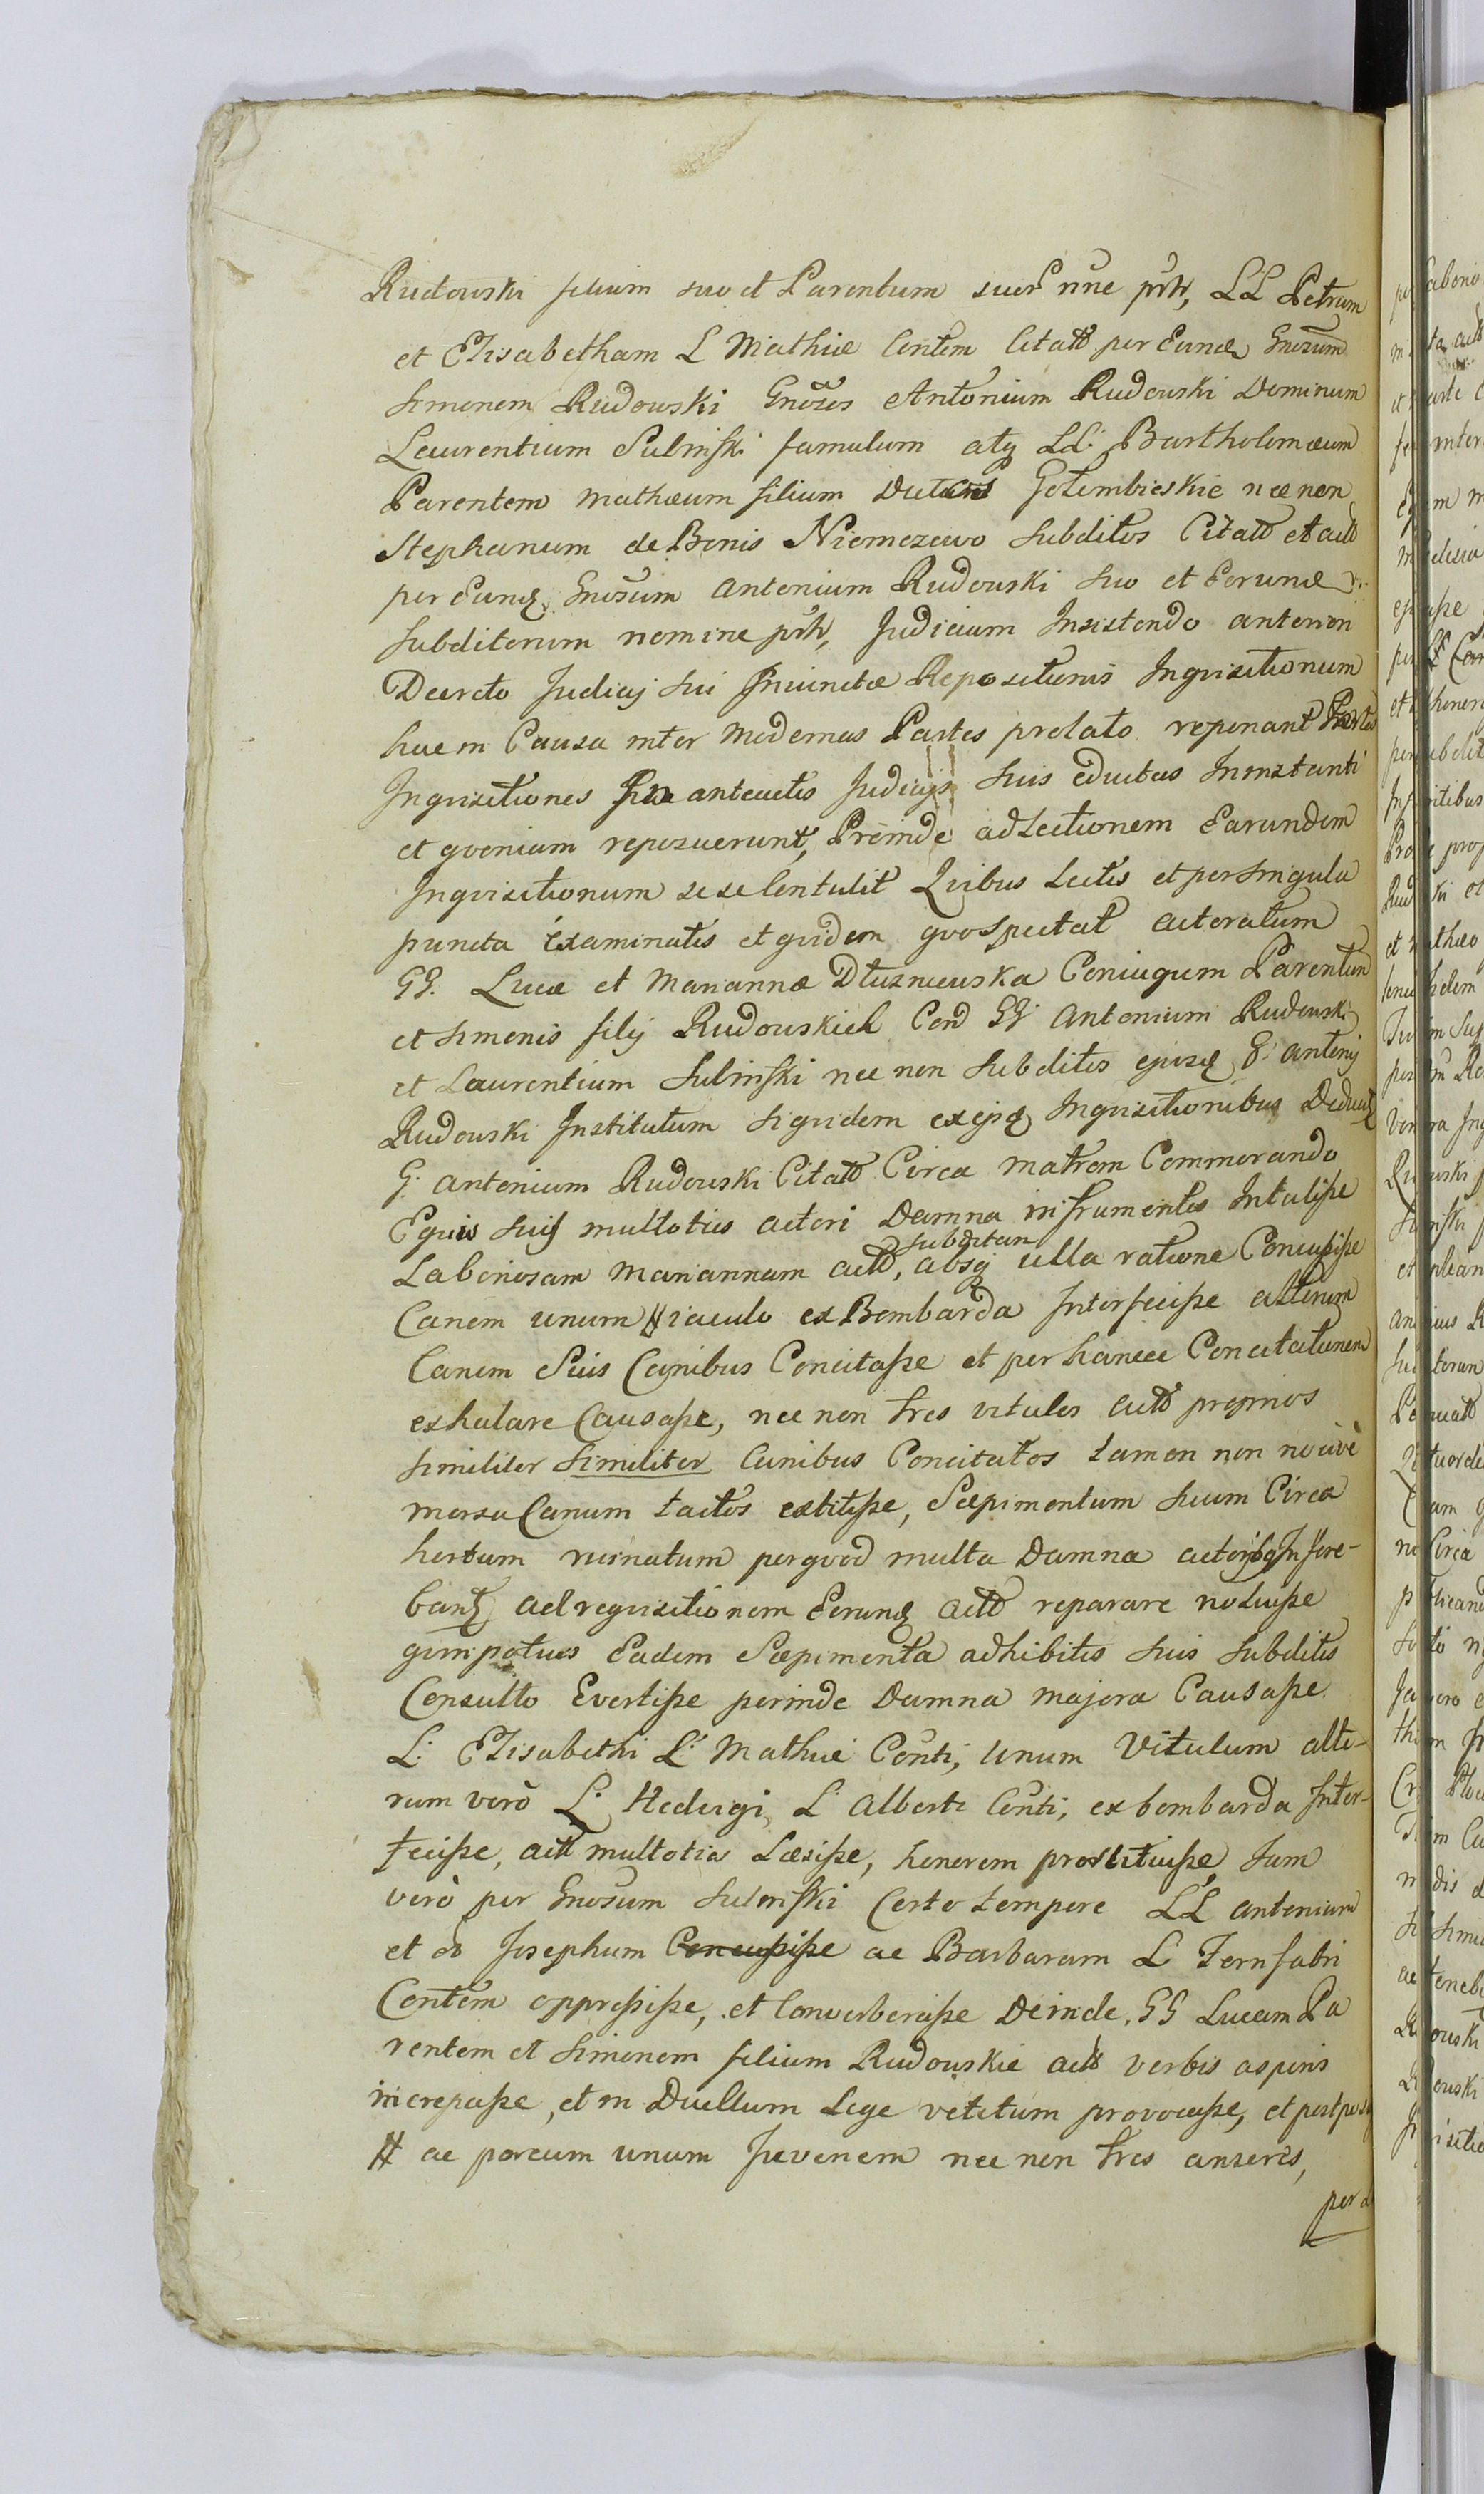 Rudowski filium suo et Parentum suor nne prtr, LL Petrum
et Elisabetham L Mathiæ Contem Citatt per Eund Gnosum
Simonem Rudowski Gnosos Antonium Rudowski Dominum
Laurentium Sulinski famulum atq LL. Bartholomæum
Parentem Mathæum filium Dictans Gołembieskie nec non
Stephanum de Bonis Niemczewo Subditos Citatt et actt
per Eund Gnosum Antonium Rudowski Suo et Eorund
Subditorum nomine prtr, Judicium Insistendo anteriori
Decreto Judicij sui Invincitæ Repositionis Inquisitionum
hac in Causa inter Modernas Partes prolato reponant Partes
Inquisitiones In anteactis Judicijs Suis eductas In instanti
et quoniam reposuerunt, Proinde ad Lectionem Earundem
Inquisitionum sese Contulit Quibus Lectis et per Singula
puncta Examinatis et quidem quo Spectat actoratum
GG. Lucæ et Mariannæ Dłuzniewska Coniugum Parentum
et Simonis filij Rudowskich Cond GG Antonium Rudowski
et Laurentium Sulinski nec non Subditos ejusd G. Antonij
Rudowski Institutum Siquidem ex ijsd Inquisitionibus Deduct
G. Antonium Rudowski Citatt Circa Matrem Commorando
Equis Suis multoties actori Damna in frumentis Intulisse
subditam
Laboriosam Mariannam actt, absq ulla ratione Concussisse
Canem unum # iaculo ex Bombarda Interfecisse alterum
Canem Suis Canibus Concitasse et per hancce Concitationem
exhalare Causasse, nec non tres vitulos actt proprios
similiter Similiter Canibus Concitatos tamen non nocivè
morsu Canum tactos extitisse, Sæpimentum Suum Circa
hortum ruinatum per quod multa Damna actoribq Infere-
bant ad requisitionem Eorund actt reparare noluisse
quin potius Eadem Sæpimenta adhibitis Suis Subditis
Consulto Evertisse perinde Damna majora Causasse
L. Elisabethi L. Mathiæ Conti, Unum Vitulum alte-
rum verò L. Hedvigi, L. Alberti Conti, ex bombarda Inter-
fecisse, actt multotia Læsisse, honorem prostituisse, Tum
verò per Gnosum Sulinski Certo tempore LL Antonium
et Josephum Concussisse ac Barbaram L Fornfabri
Contem oppressisse, et Converberasse Deinde. GG Lucam Pa
rentem et Simonem filium Rudowskie actt verbis asperis
increpasse, et in Duellum Lege vetitum provocasse, et
# ac porcum unum Juvenem nec non tres anseres,
per